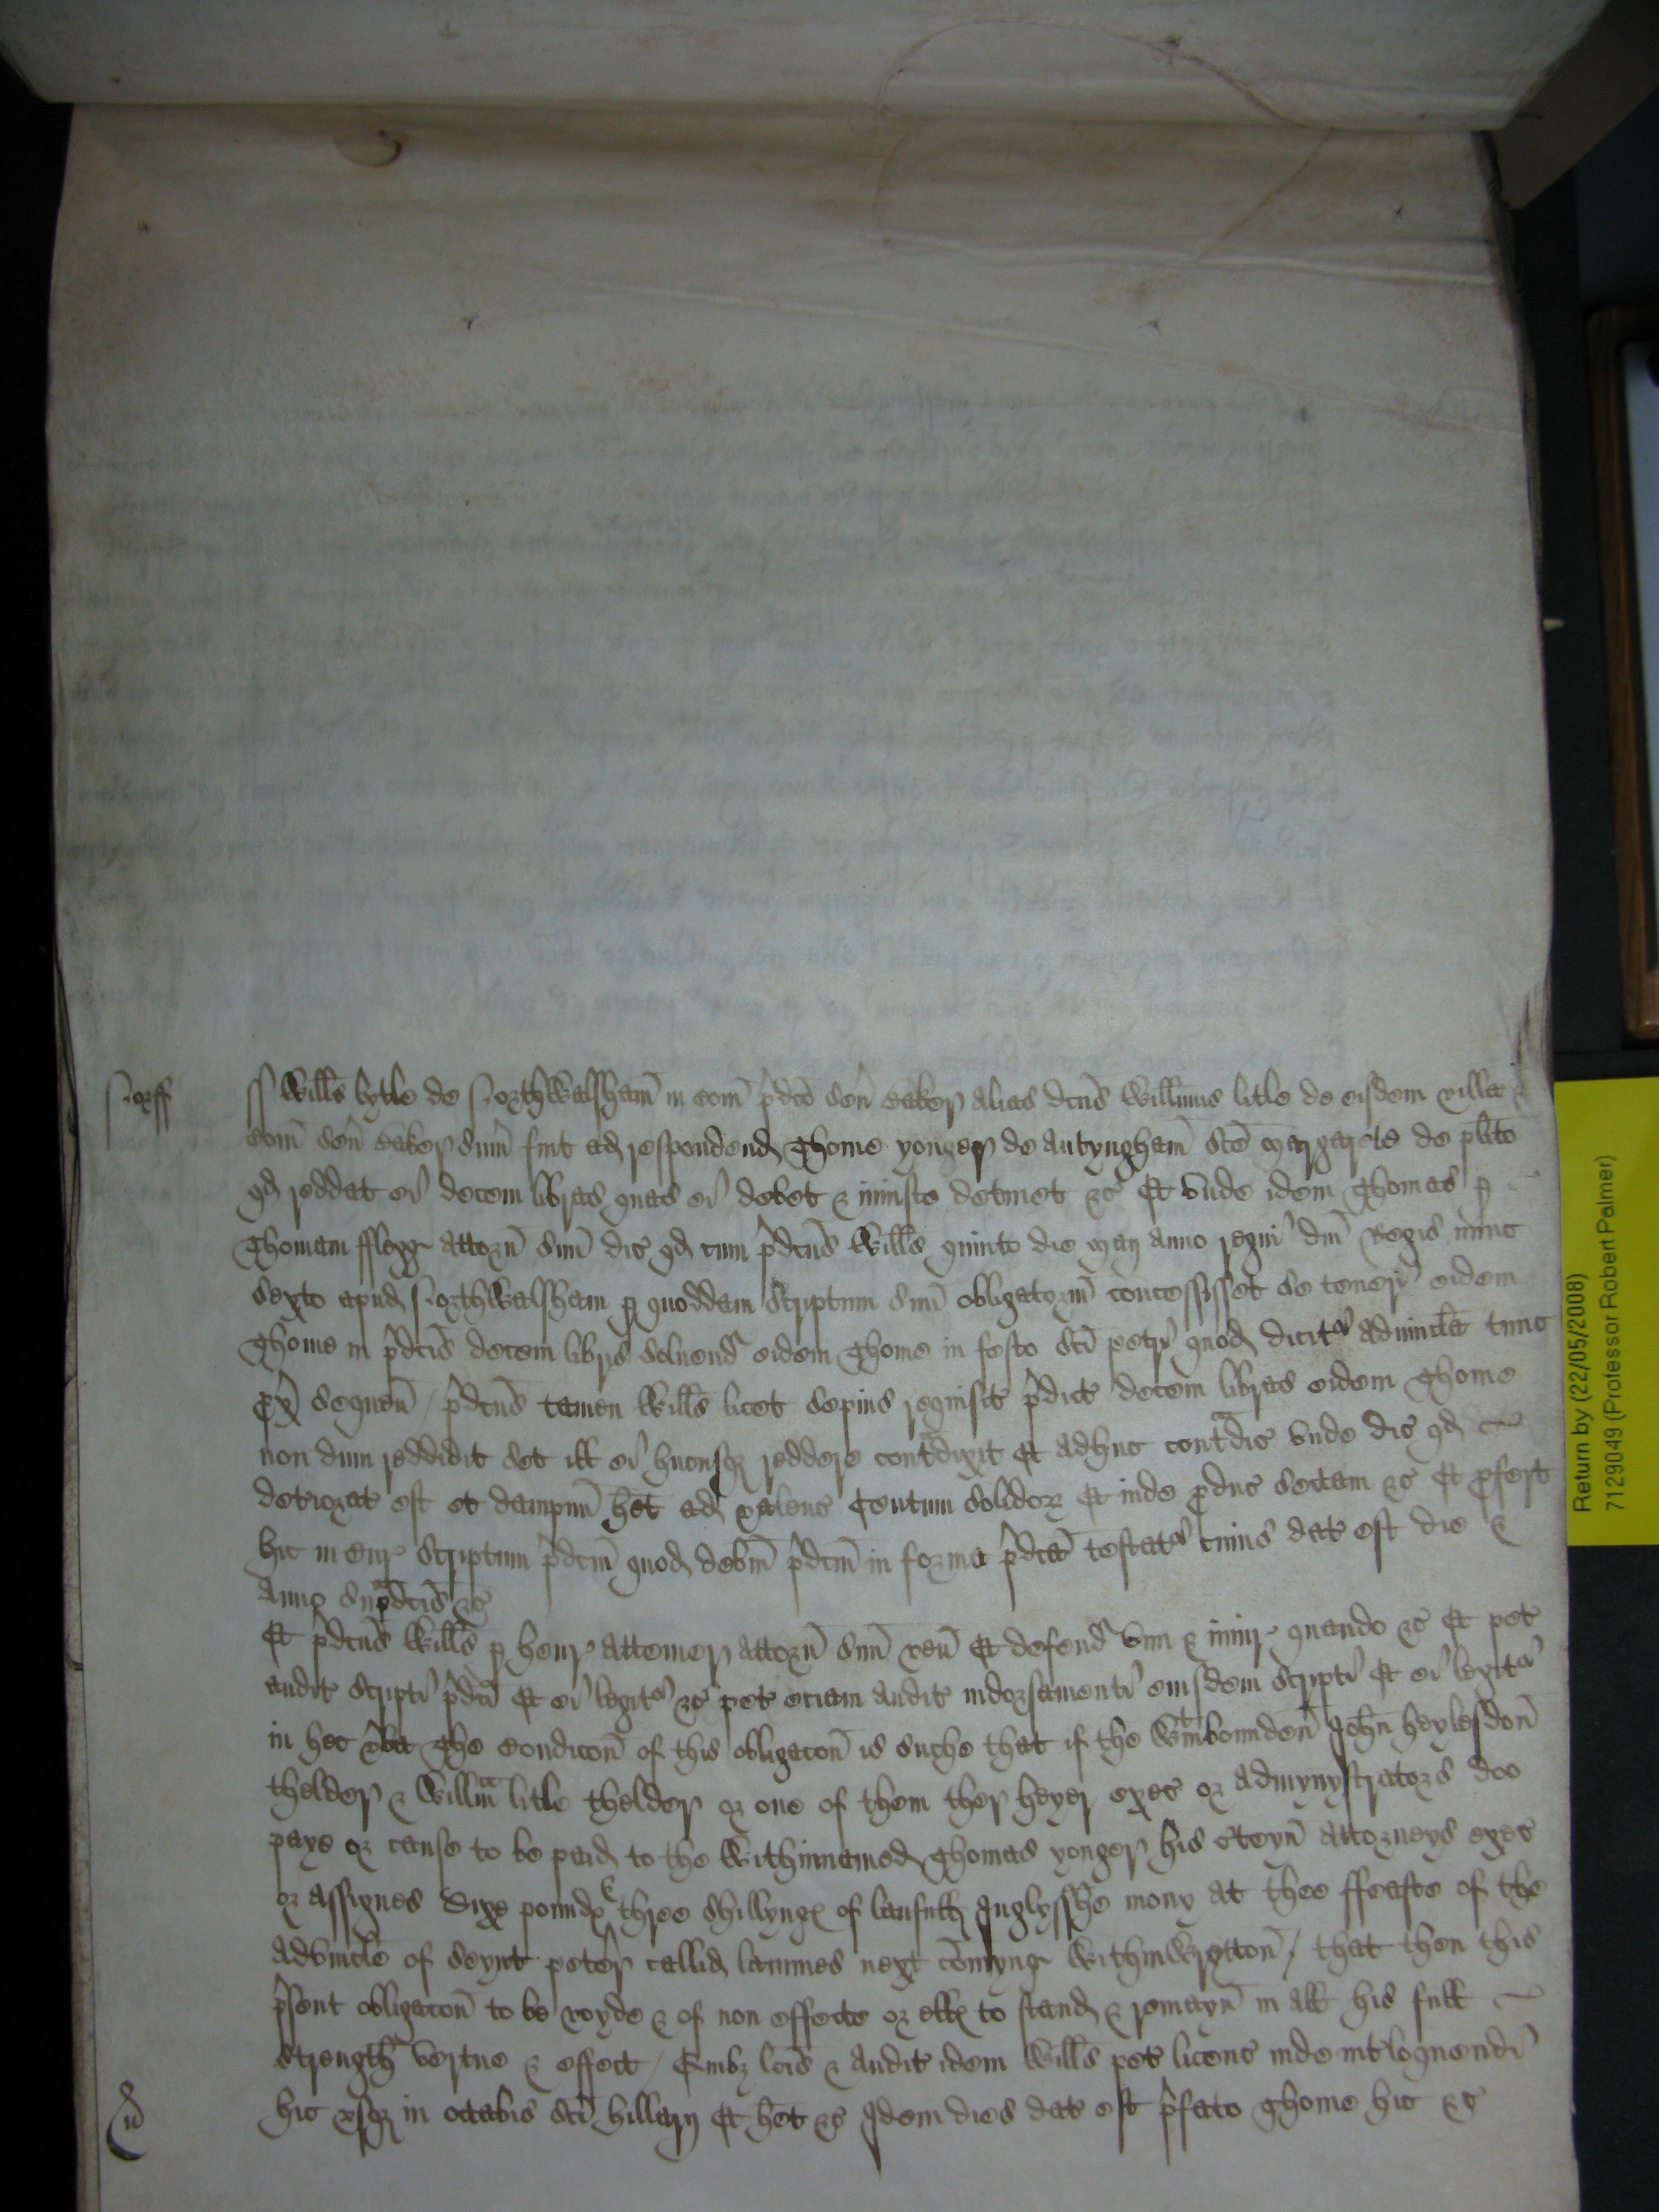 Norff ss Wills lytle de Northwalsham in com pdco sen Baker alias dcus Willmus litle de eisdem villa &
com sen Baker sum fuit ad respondend Thome yonger de Antyngham sce Margarete de plito
qd reddat ei decem libras quas ei debet & iniuste detinet &c Et unde idem Thomas p
Thomam fflegg attorn suu dic qd cum pdcus Wills quinto die Maij anno regni dni Regis nunc
sexto apud Northwalsham p quoddam scriptum suu obligatoriu concessisset se teneri eidem
Thome in pdcis decem libris solvend eidem Thome in festo sci petri quod dicitr advincla tunc
px sequen / pdcus tamen Wills licet sepius requisit pdict decem libras eidem Thome
non dum reddidit set ill ei hucusq reddere contradixit Et adhuc contradic unde dic qd
deteriorat est et dampnu het ad valenc Centum solidor Et inde pduc sectam &c Et pfert
hic in Cur scriptum pdcm quod debm pdcm in forma pdca testatr cuius dat est die &
Anno supadcis &c
Et pdcus Wills p henr Attemer attorn suu ven Et defend vim & iniur quando &c Et pet
audit scripti pdci Et ei legitr &c pet eciam audit indorsamenti eiusdem scripti Et ei legitr
in hec vba The Condicon of this obligacon is suche that if the Wtinbounden John heylesdon
thelder & Willm litle thelder or one of them ther heyer exec or Admynystrators doo
paye or cause to be paid to the Withinnamed Thomas yonger his c'teyn Attorneys exec
or Assignes Sixe pounde three shillynge of laufull Inglysshe mony at thee ffeaste of the
Advincle of Seynt peter callid lammes next comyng WithinWrytton / that then this
psent obligacon to be voyde & of non effecte or elle to stand & remayn in all his full
strength vertue & effect / Quibz lcis & audit idem Wills pet licenc inde intloquendi
hic usqz in octabis sci hillarij Et het &c Idem dies dat est pfato Thome hic &c
Return by (22/05/2008)
7129049 (Professor Robert Palmer)